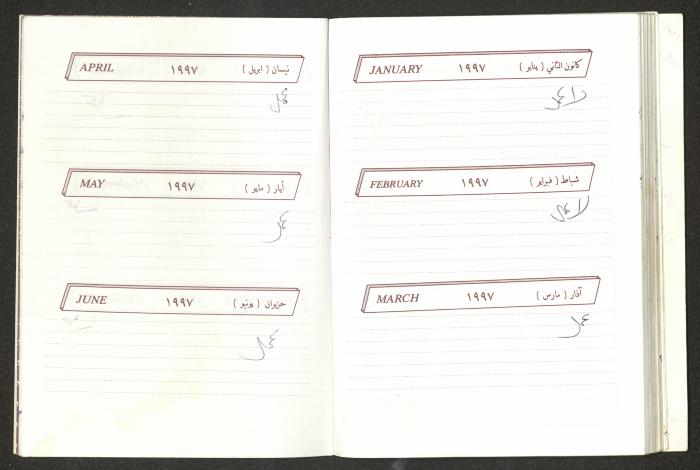 JANUARY ١٩٩٧ كانون الثاني ( يناير )
لا عمل
FEBRUARY ١٩٩٧ شباط ( فبراير )
لا عمل
MARCH ١٩٩٧ آذار ( مارس )
عمل
APRIL ١٩٩٧ نيسان ( ابريل )
عمل
MAY ١٩٩٧ أيار ( مايو )
عمل
JUNE ١٩٩٧ حزيران ( يونيو )
عمل